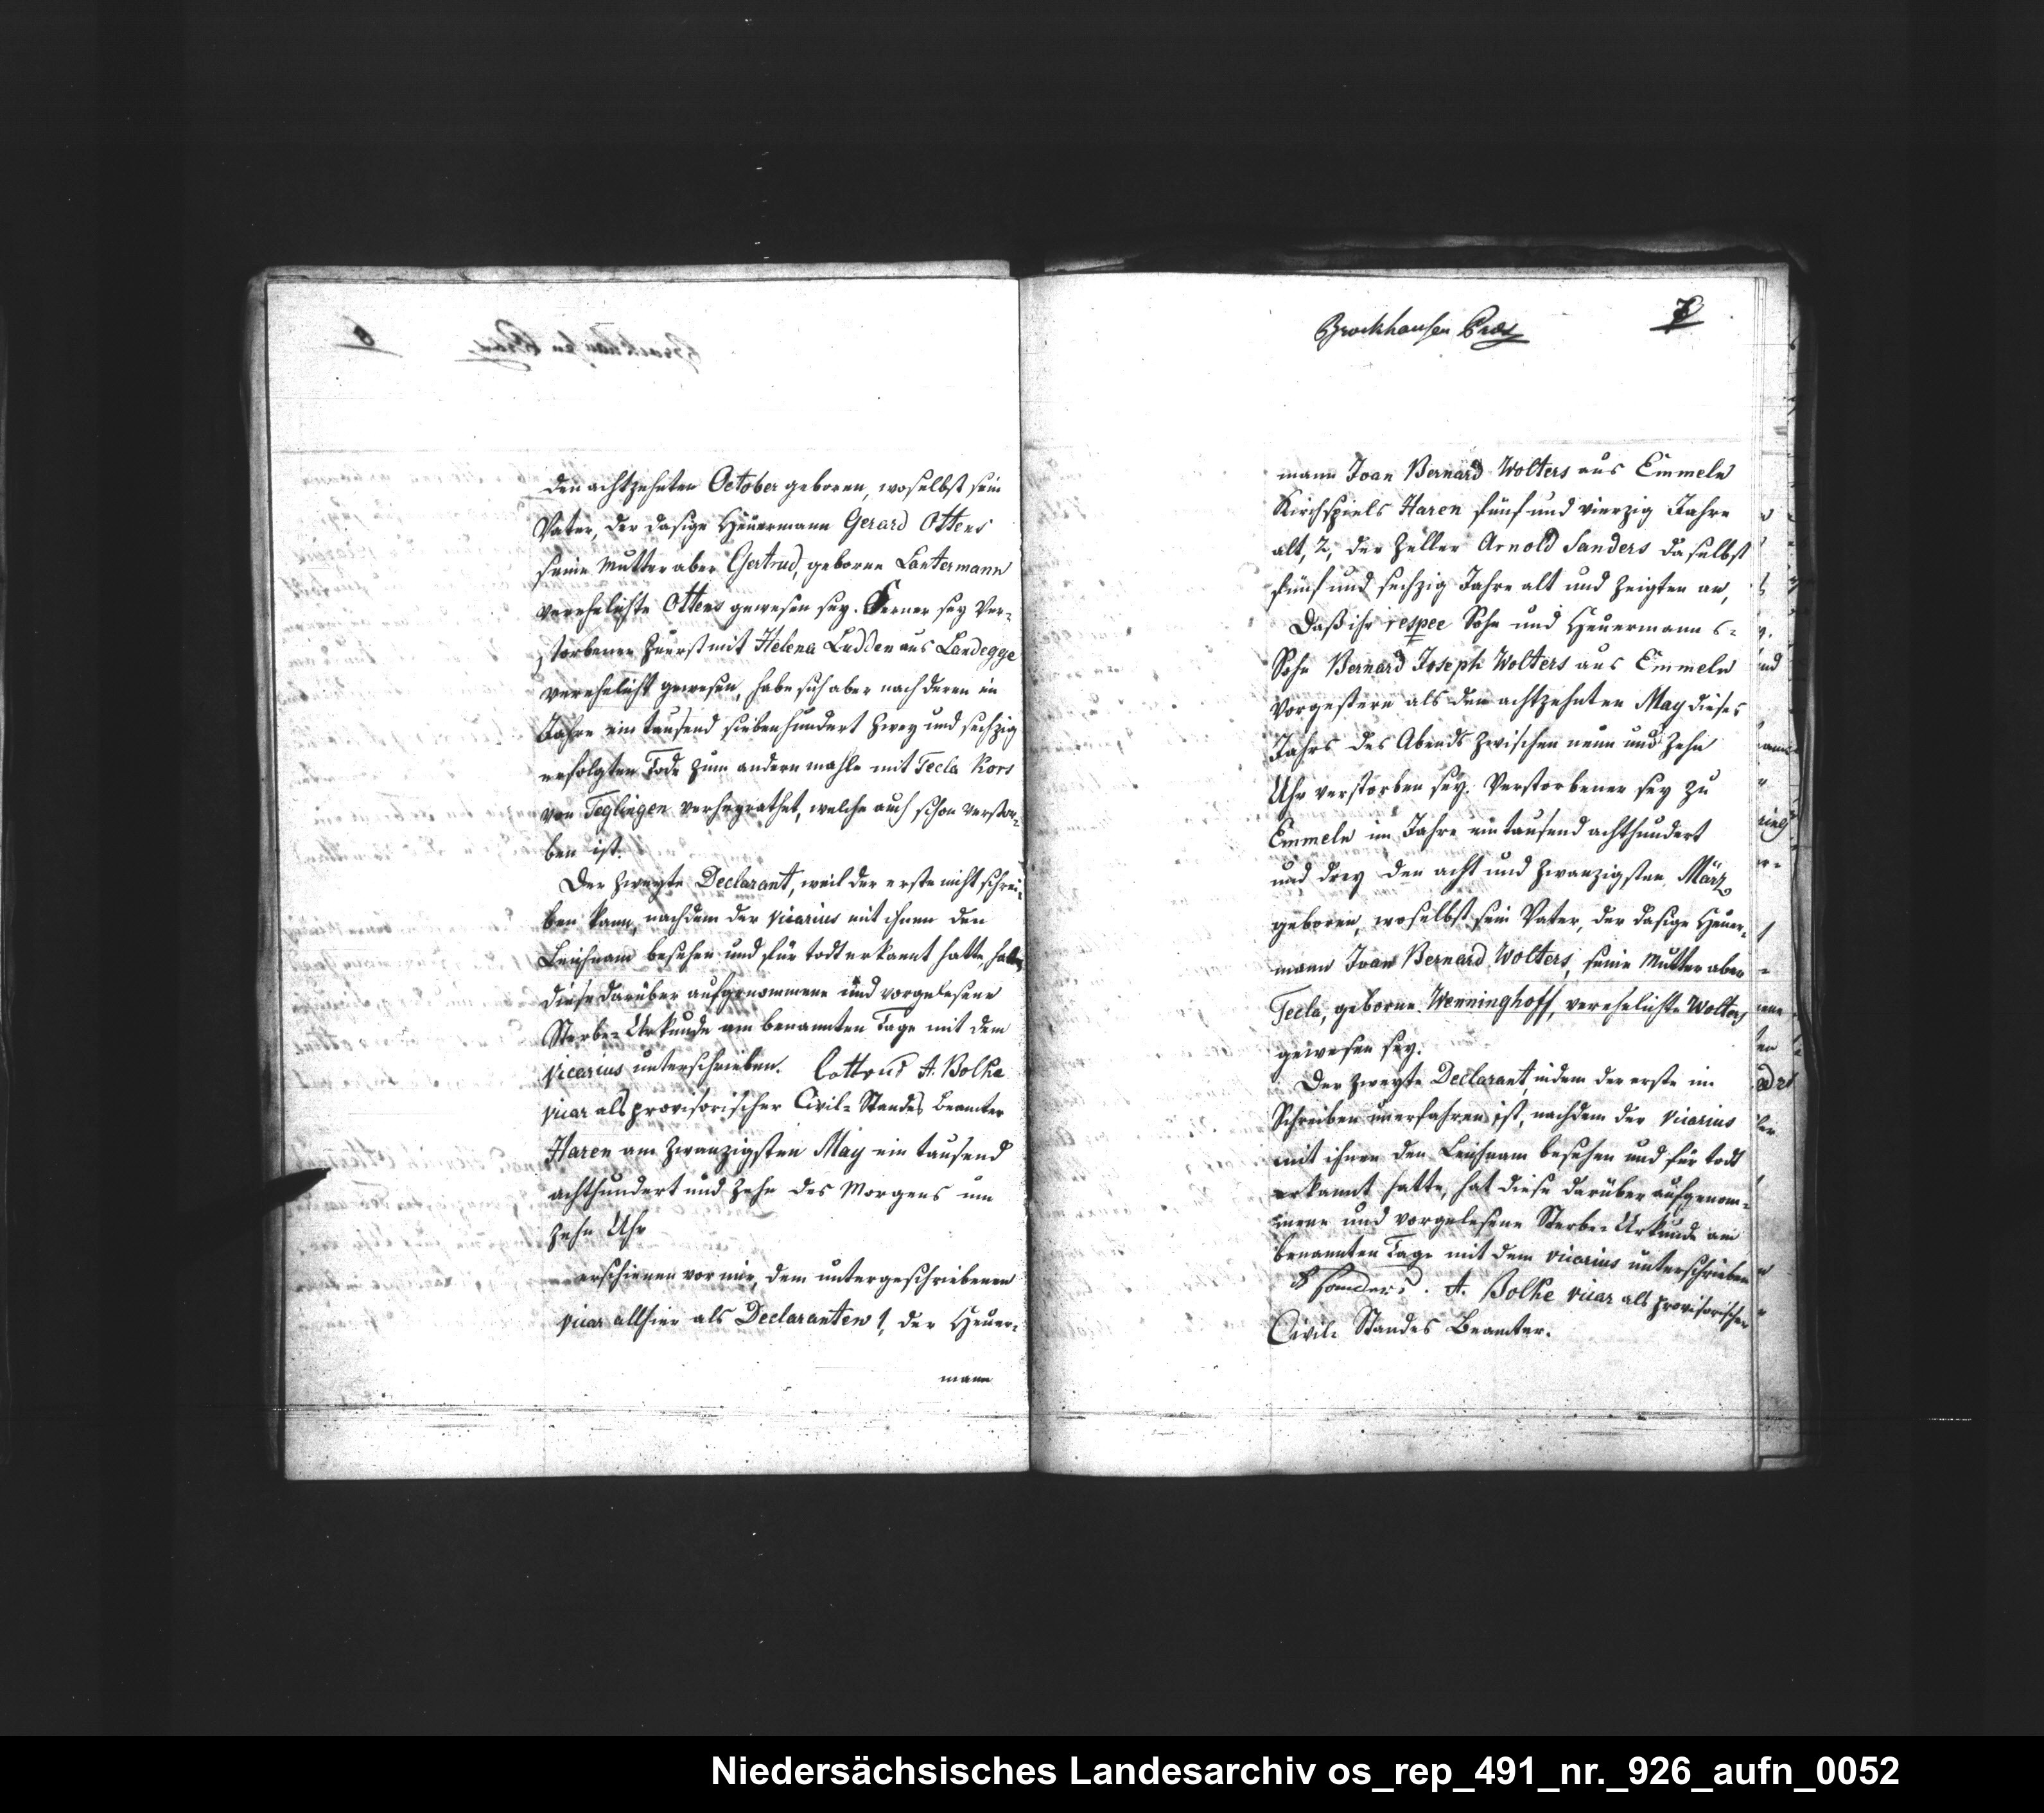 den achtzehnten October geboren, woselbst sein
Vater, der dasige Heüermann Gerard Ottens
seine Mutter aber Gertrud, geborne Lantermann
verehelichte Ottens gewesen sey. Ferner sey Ver-
storbener zuerst mit Helena Ludden aus Landegge
verehelicht gewesen, habe sich aber nach deren im
Jahre ein tausend siebenhundert zwey und sechzig
erfolgten Tode zum andern mahle mit Tecla Kors
von Teglingen verheyrathet, welche auch schon verstor-
ben ist.
Der zweyte Declarant, weil der erste nicht schrei-
ben kann, nachdem der vicarius mit ihnen den
Leichnam besehen und für todt erkannt hatte, hat
diese darüber aufgenommene und vorgelesene
Sterbe-Urkunde am benannten Tage mit dem
vicarius unterschrieben. A. Bolke
vicar als provisorischer Civil-Standes Beamter
Haren am zwanzigsten May ein tausend
achthundert und zehn des Morgens um
zehn Uhr
erschienen vor mir, dem untergeschriebenen
vicar allhier als Declaranten 1, der Heuer-
mann
Brockhausen Præs
7
mann Joan Bernard Wolters aus Emmeln
Kirchspiels Haren fünf und vierzig Jahre
alt, 2, der Zeller Arnold Sanders daselbst
fünf und sechzig Jahre alt und zeigten an,
Daß ihr respee Sohn und Heuermanns-
Sohn Bernard Joseph Wolters aus Emmeln
vorgestern als den achtzehnten May dieses
Jahrs des Abends zwischen neun und zehn
Uhr verstorben sey. Verstorbener sey zu
Emmeln im Jahre ein tausend achthundert
und drey den acht und zwanzigsten März
geboren, woselbst sein Vater, der dasige Heuer-
mann Joan Bernard Wolters, seine Mutter aber
Tecla, geborne Wenninghoff, verehelichte Wolters
gewesen sey.
Der zweyte Declarant, indem der erste im
Schreiben unerfahren ist, nachdem der vicarius
mit ihnen den Leichnam besehen und für todt
erkannt hatte, hat diese darüber aufgenom-
mene und vorgelesene Sterbe-Urkunde am
benannten Tage mit dem vicarius unterschrieben
A. Bolke vicar als provisorischer
Civil-Standes Beamter.
Niedersächsisches Landesarchiv os_rep_491_nr._926_aufn_0052